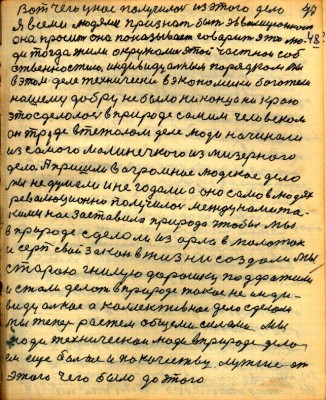 Вот чего у нас получилось из этого дело 47
Я всеми людями признат быть эволюционного
она просит она показывает говорит это лю- 48
ди тогда жили окружались этой частной соб
ственностью индивидуальным порядком мы
в этом деле технически в экономики богатеем
нашему добру не было ни конца ни краю
это сделалось в природе самим человеком
он труде в тяжелом деле люди начинали
из самого малинечкого из мизерного
дела. А пришли в огромные людское дело
мы не думали и не гадали а оно само в людях
революционно получилось между нами та-
кими нас заставила природа чтобы мы
в природе сделали из орла в молоток
и серп свой закон в жизни создали мы
старою гнилую дорошку поддражнили
и стали делать в природе такое не инди-
видуальное а коллективное дело сделали
мы теперь растем общими силами мы
люди технические люди в природе дела-
ем еще больше и по качеству лучшие от
этого чего было до этого